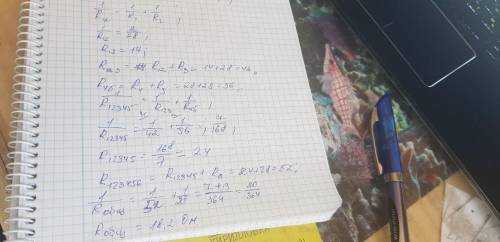 1/R₁₂ = 1/R₁ + 1/R₂ ;
R₁₂ = 14;
R₁₂₃ = R₁₂ + R₃ = 14+28 = 42,
R₄₅ = R₄ + R₅ = 28+28 = 56,
1/R₁₂₃₄₅ = 1/R₁₂₃ + 1/R₄₅ ;
1/R₁₂₃₄₅ = 1/42 + 1/56 ; 7/168 ;
R₁₂₃₄₅ = 168/7 = 24
R₁₂₃₄₅₆ = R₁₂₃₄₅ + R₆ = 24+28 = 52,
1/Rобщ = 1/52 + 1/28 = 7+13/364 = 20/364
Rобщ = 18,2 Ом